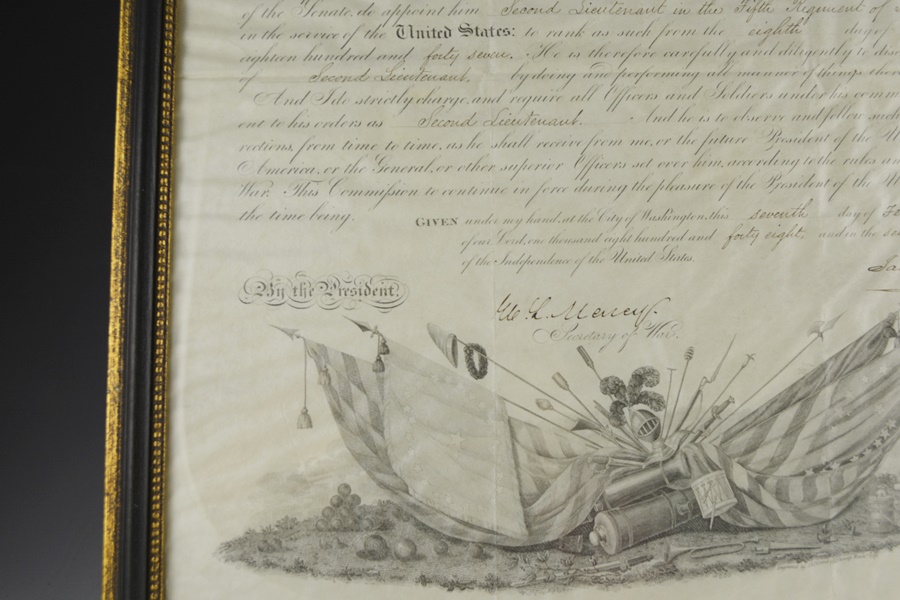 of the Senate, do appoint him Second Lieutenant in the Fifth Regiment of
in the service of the United States: to rank as such from the eighth day of
eighteen hundred and forty seven. He is therefore carefully and diligently to
of Second Lieutenant, by doing and performing all manner of things
And I do strictly charge, and require all Officers and Soldiers under his
ent to his orders as Second Lieutenant. And he is to observe and follow such
rections, from time to time, as he shall receive from me, or the future President of the
America, or the General, or other superior Officers set over him, according to the rules
War. This Commission to continue in force during the pleasure of the President of the
the time being.
GIVEN under my hand, at the City of Washington, this seventh day of
of our Lord, one thousand eight hundred and forty eight, and in the
of the Independence of the United States.
By the President.
W. L. Marcy
Secretary of War.